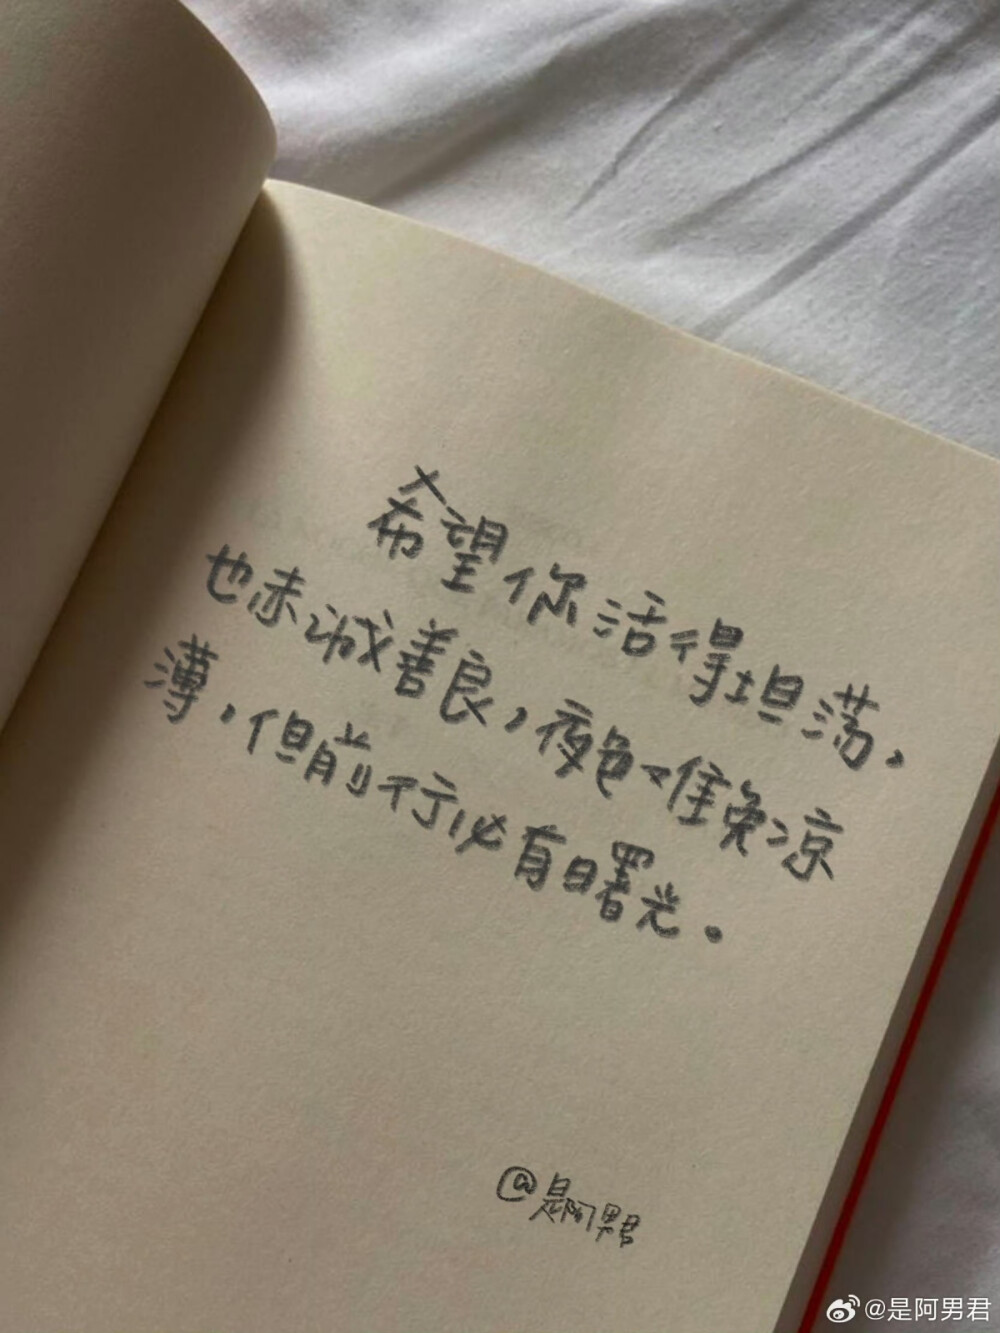 希望你活得坦荡,
也赤诚善良,夜色难免凉
薄,但前行必有曙光.
@是阿男君
@是阿男君